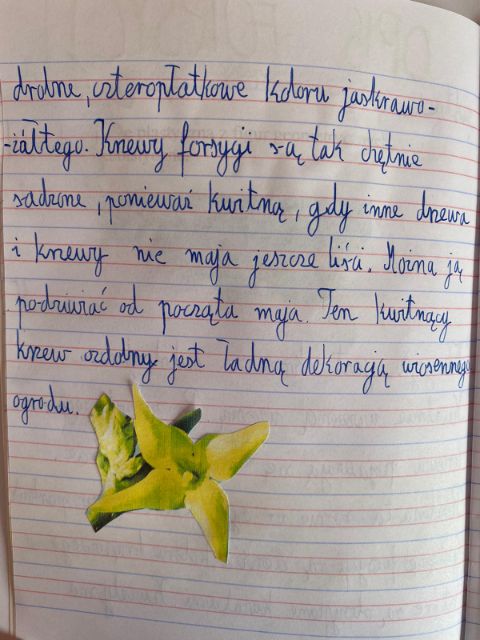 drobne, czteropłatkowe koloru jaskrawo-
-żółtego. Krzewy forsygi są tak chętnie
sadzone, ponieważ kwitną, gdy inne drzewa
i krzewy nie maja jeszcze liści. Można ją
podziwiać od począta maja. Ten kwitnący
krzew ozdobny jest ładną dekoracją wiosennego
ogrodu.